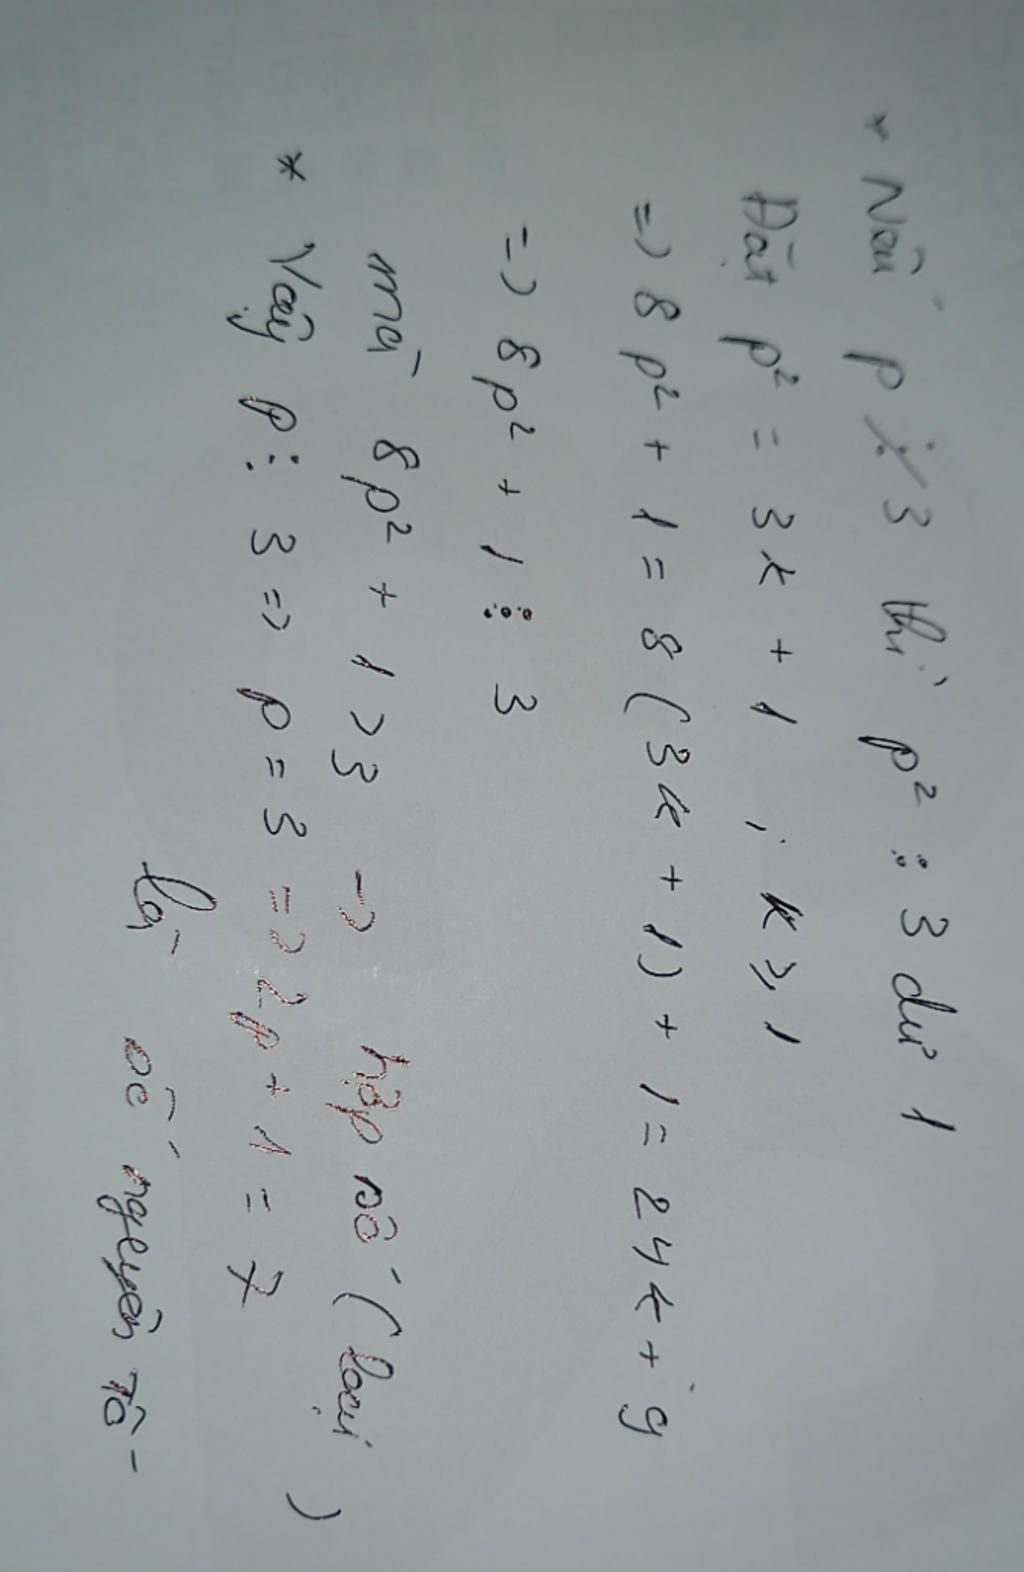 * Nếu p ⋮̸ 3 thì p² ⋮ 3 dư 1
Đặt p² = 3k + 1 , k ≥ 1
=> 8p² + 1 = 8(3k + 1) + 1 = 24k + 9
=> 8p² + 1 ⋮ 3
mà 8p² + 1 > 3 -> hợp số (loại)
* Vậy p ⋮ 3 => p = 3 => 2p + 1 = 7
là số nguyên tố